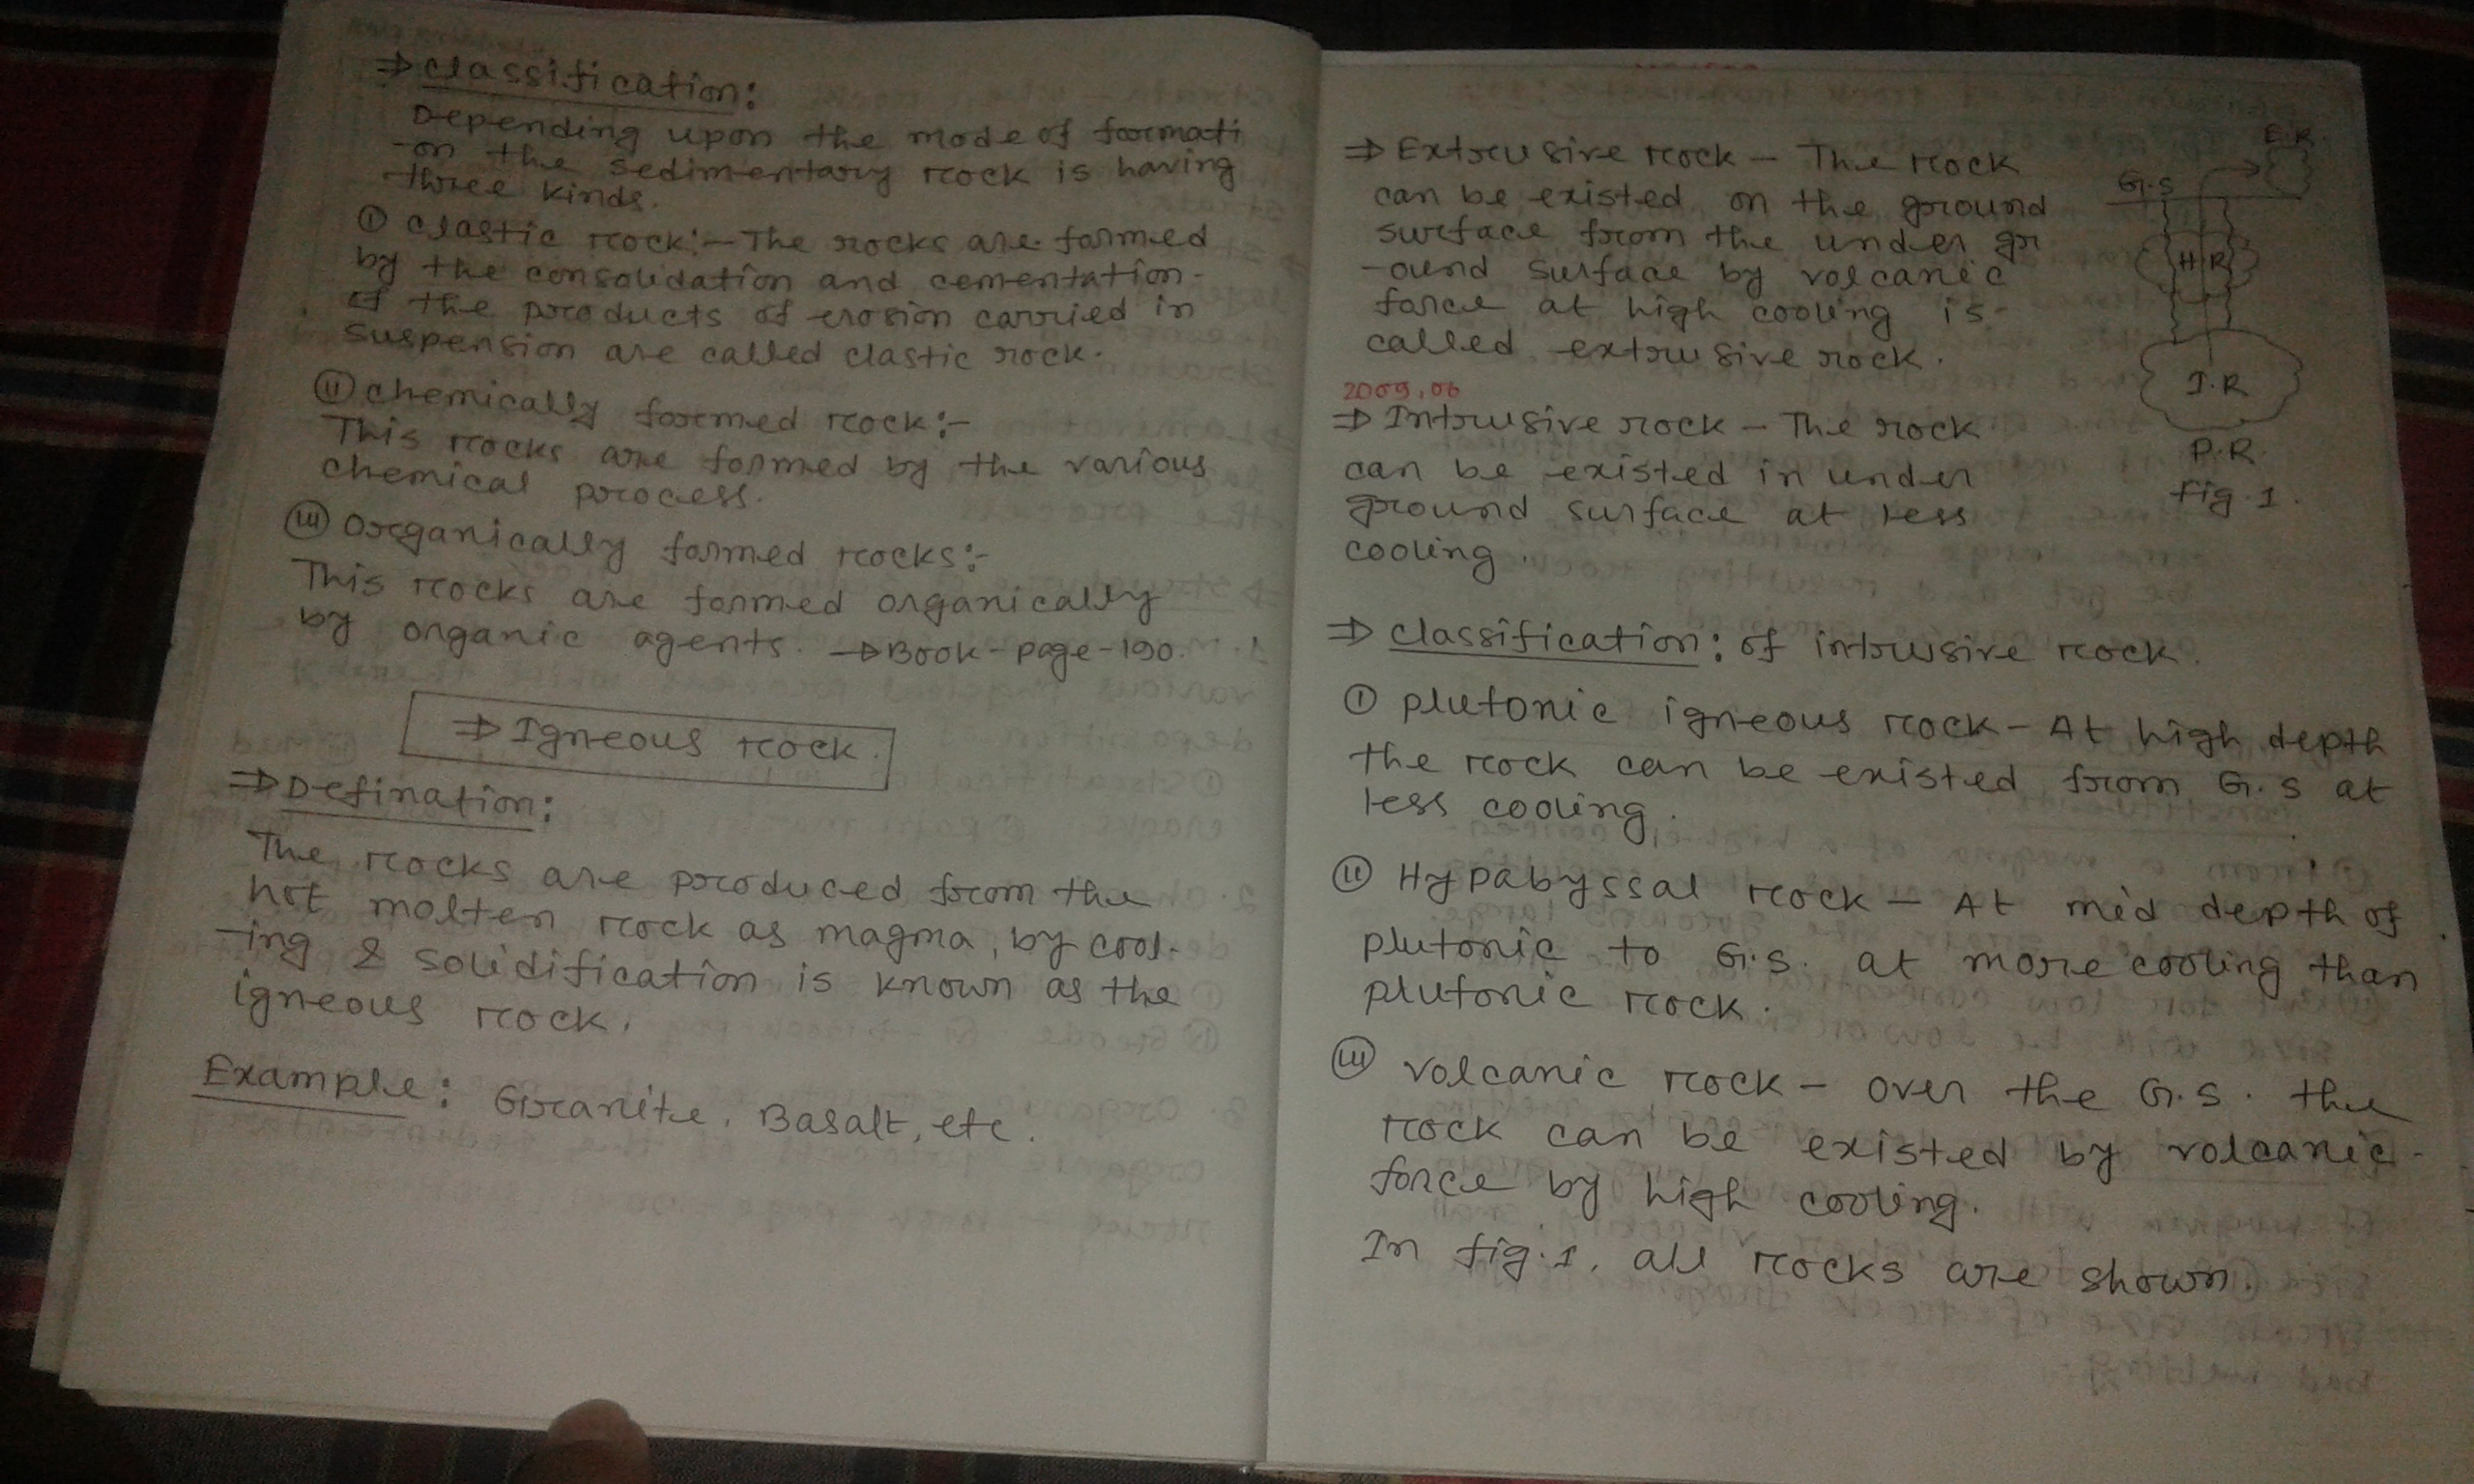 ⇒ Classification:
Depending upon the mode of formati
-on the sedimentary rock is having
three kinds.
① Clastic rock:- The rocks are formed
by the consolidation and cementation-
of the products of erosion carried in
suspension are called clastic rock.
ⓘⓘ Chemically formed rock:-
This rocks are formed by the various
chemical process.
ⓘⓘⓘ Organically formed rocks:-
This rocks are formed organically
by organic agents. → Book-page-190.
⇒ Igneous rock.
⇒ Defination:
The rocks are produced from the
hot molten rock as magma, by cool-
-ing & solidification is known as the
igneous rock.
Example: Granite, Basalt, etc.
⇒ Extrusive rock - The rock
can be existed on the ground
surface from the under gr
-ound surface by volcanic
force at high cooling is-
called extrusive rock.
2009,06
⇒ Intrusive rock - The rock
can be existed in under
ground surface at less
cooling.
E.R.
G.S
H.R
I.R
P.R.
fig.1.
⇒ Classification: of intrusive rock.
① plutonic igneous rock - At high depth
the rock can be existed from G.S at
less cooling.
ⓘⓘ Hypabyssal rock - At mid depth of
plutonic to G.S. at more cooling than
plutonic rock.
ⓘⓘⓘ volcanic rock - over the G.S. the
rock can be existed by volcanic-
force by high cooling.
In fig.1, all rocks are shown.